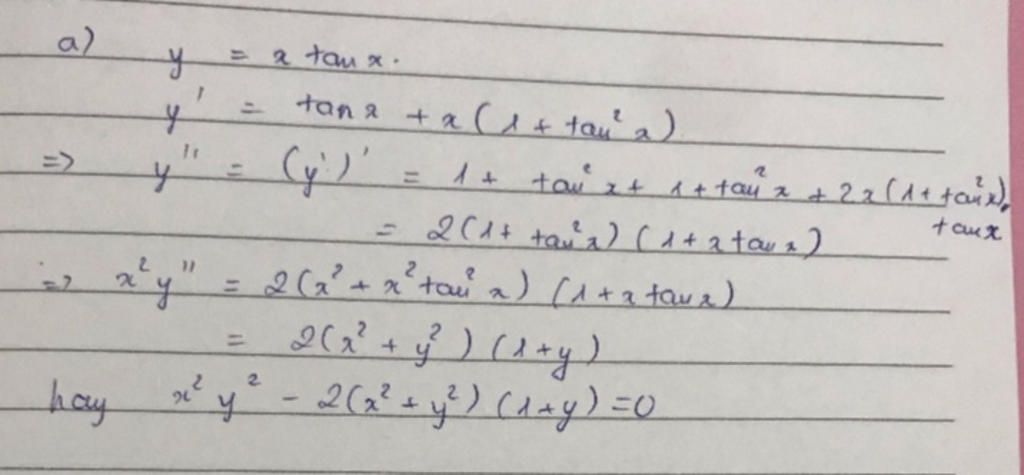 a) y = x tan x.
y' = tan x + x (1 + tan² x)
=> y'' = (y')' = 1 + tan² x + 1 + tan² x + 2x (1 + tan² x).
tan x
= 2(1 + tan² x) (1 + x tan x)
=> x² y'' = 2(x² + x² tan² x) (1 + x tan x)
= 2(x² + y²) (1 + y)
hay x² y² - 2(x² + y²) (1 + y) = 0